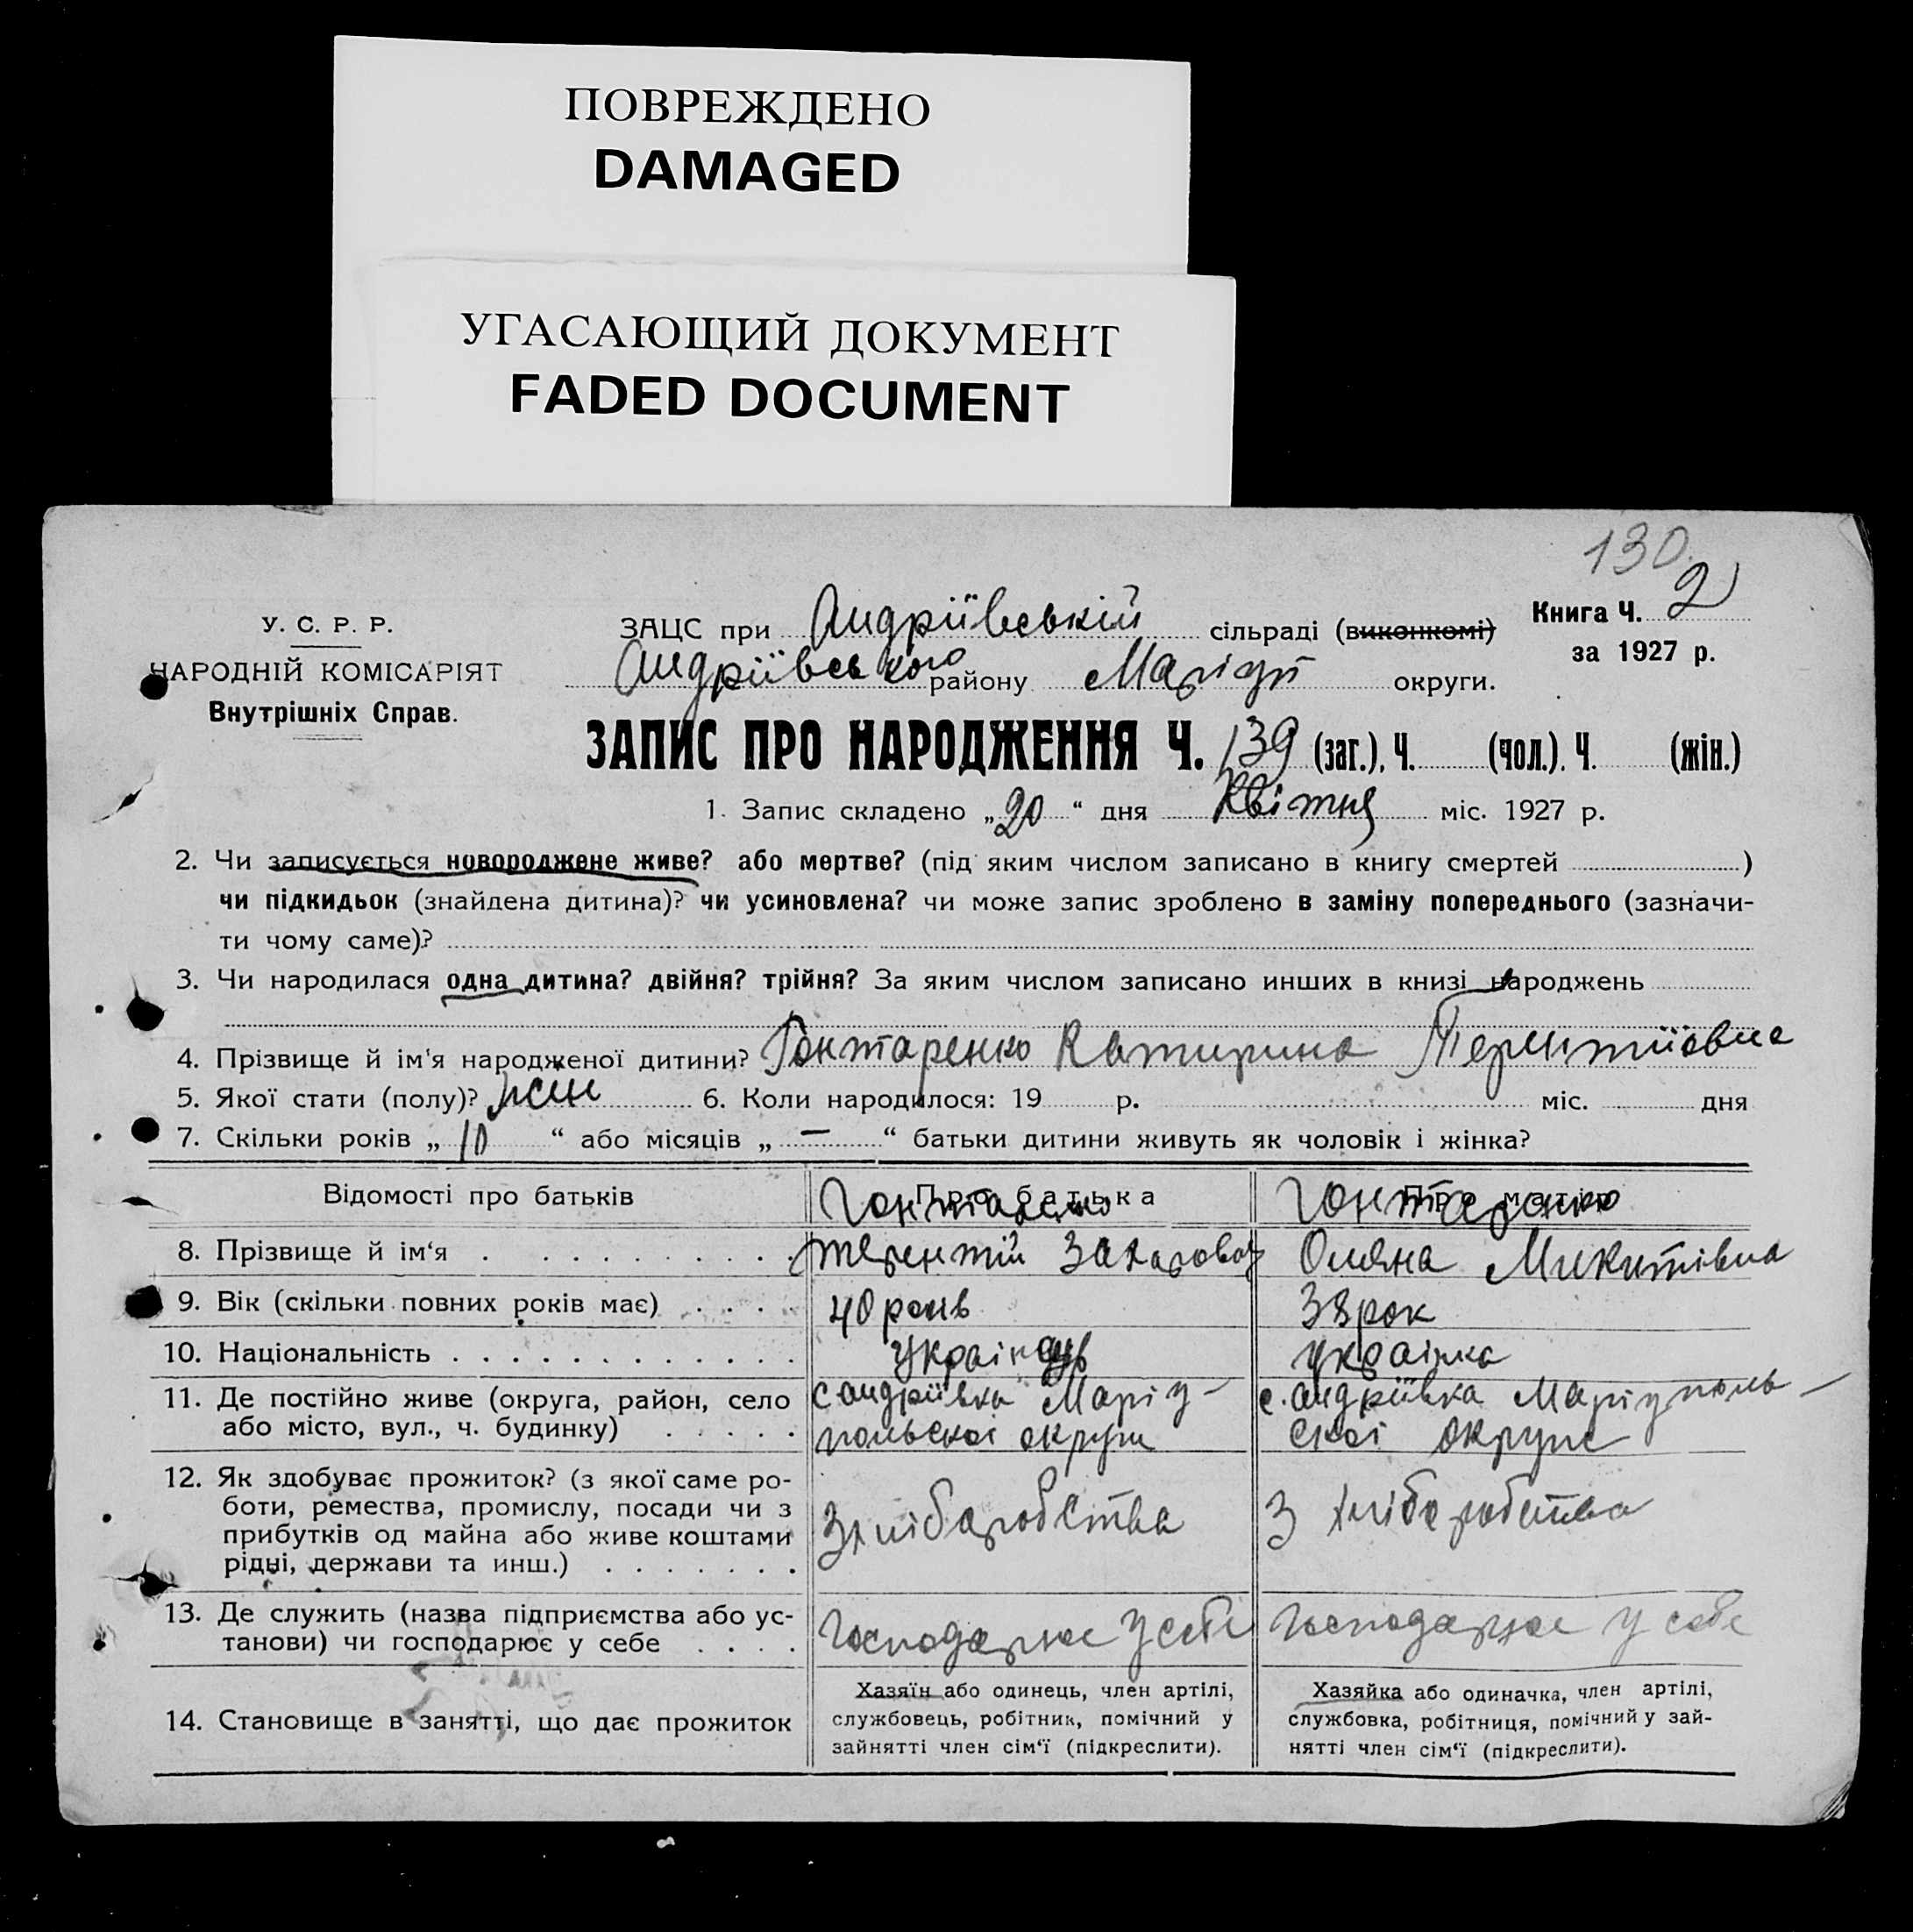 ПОВРЕЖДЕНО
DAMAGED
УГАСАЮЩИЙ ДОКУМЕНТ
FADED DOCUMENT
130
У. С. Р. Р.
НАРОДНІЙ КОМІСАРІЯТ
Внутрішніх Справ.
ЗАЦС при Андріївській сільраді (виконкомі)
Андріївського району Маріуп округи.
Книга Ч. 2
за 1927 р.
ЗАПИС ПРО НАРОДЖЕННЯ Ч. 139 (заг.), Ч. (чол.). Ч. (жін.)
1. Запис складено „20“ дня Квітня міс. 1927 р.
2. Чи записується новороджене живе? або мертве? (під яким числом записано в книгу смертей )
чи підкидьок (знайдена дитина)? чи усиновлена? чи може запис зроблено в заміну попереднього (зазначи-
ти чому саме)?
3. Чи народилася одна дитина? двійня? трійня? За яким числом записано инших в книзі народжень
4. Прізвище й ім'я народженої дитини? Гонтаренко Катирина Терентіївна
5. Якої стати (полу)? жін 6. Коли народилося: 19 р. міс. дня
7. Скільки років „10“ або місяців „—“ батьки дитини живуть як чоловік і жінка?
Відомості про батьків Про батька Про матір
Гонтаренко Гонтаренко
8. Прізвище й ім'я Терентій Захаров Оляна Микитівна
9. Вік (скільки повних років має) 40 років 38 рок
10. Національність українець українка
11. Де постійно живе (округа, район, село с Андріївка Маріу- с. Андріївка Маріуполь-
або місто, вул., ч. будинку) польскоі округи скоі округи
12. Як здобуває прожиток? (з якої саме ро-
боти, ремества, промислу, посади чи з
прибутків од майна або живе коштами
рідні, держави та инш.)
З хліборобства З хліборобства
13. Де служить (назва підприємства або ус-
танови) чи господарює у себе
господарює у себе господарює у себе
14. Становище в занятті, що дає прожиток
Хазяїн або одинець, член артілі,
службовець, робітник, помічний у
зайнятті член сім'ї (підкреслити).
Хазяйка або одиначка, член артілі,
службовка, робітниця, помічний у зай-
нятті член сім'ї (підкреслити).